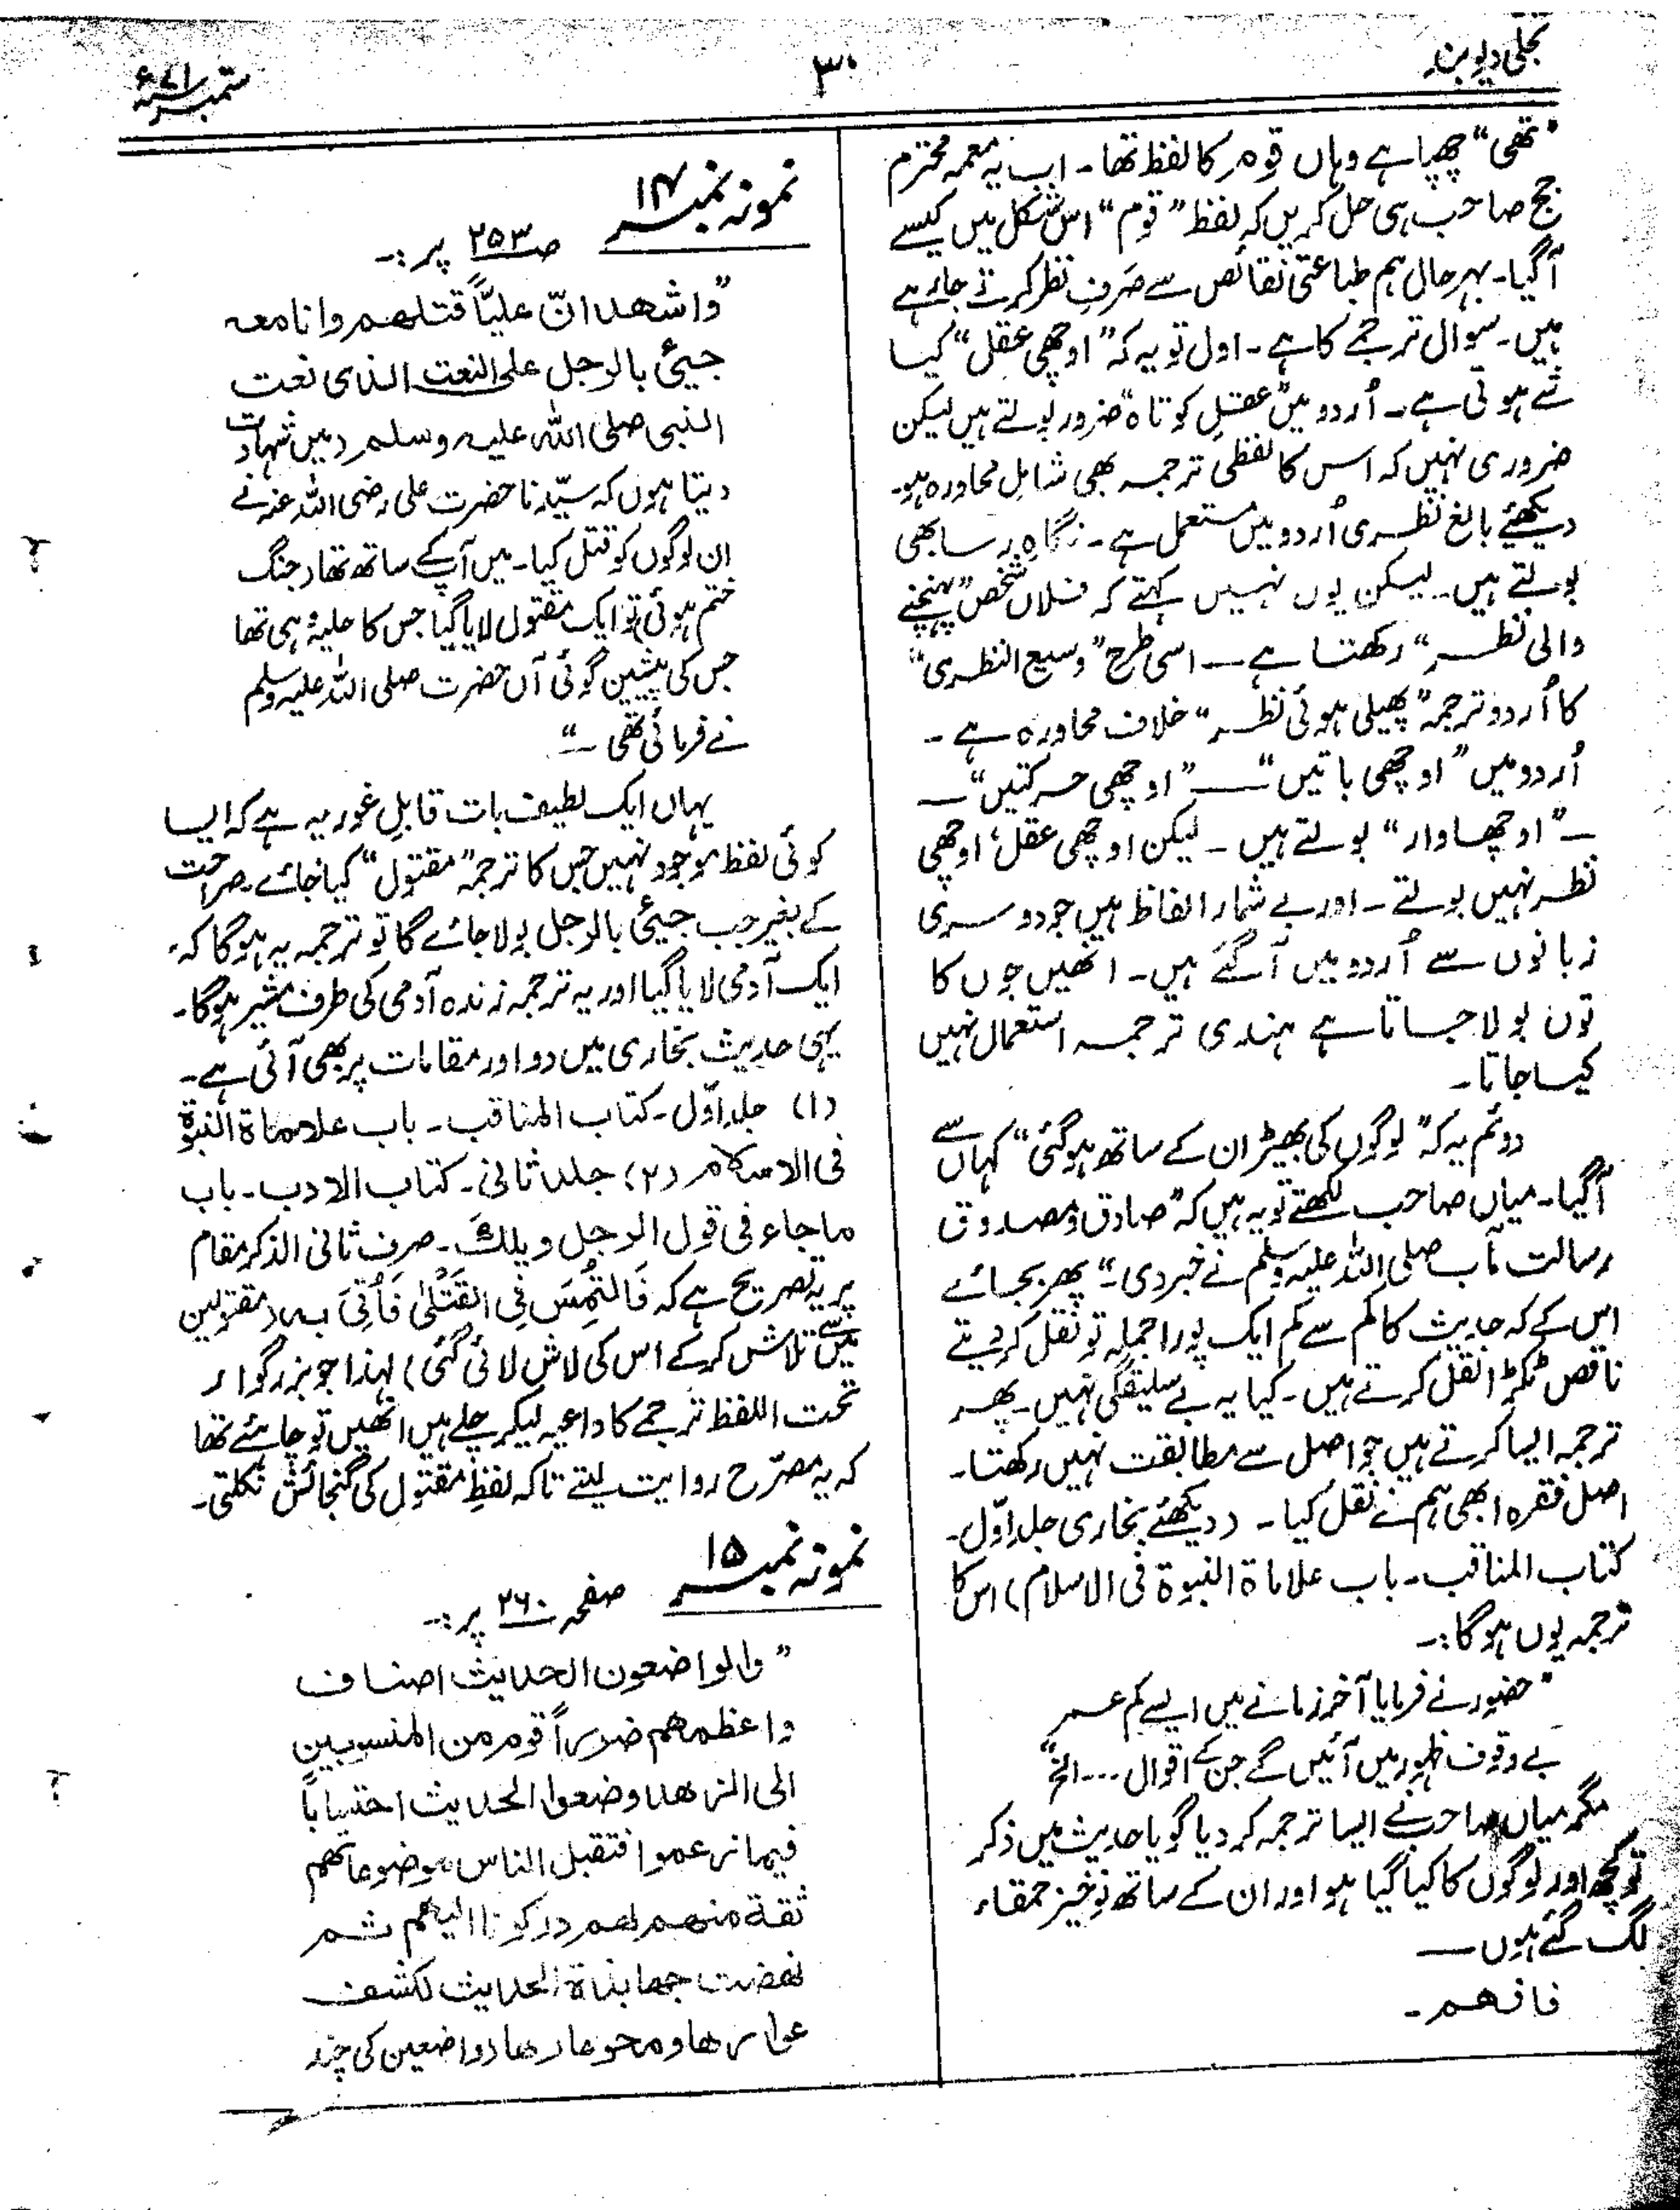 تجلی دیوبند
۳۰
ستمبر ۷۱ء
"تھی" چھپا ہے وہاں قوم کا لفظ تھا۔ اب یہ معمہ محترم
جج صاحب ہی حل کریں کہ لفظ "قوم" اس شکل میں کیسے
آگیا۔ بہرحال ہم طباعتی نقائص سے صَرفِ نظر کرتے جارہے
ہیں۔ سوال ترجمے کا ہے۔ اول تو یہ کہ "اوچھی عقل" کیا
شے ہوتی ہے۔ اُردو میں "عقلِ کوتاہ" ضرور بولتے ہیں لیکن
ضروری نہیں کہ اس کا لفظی ترجمہ بھی شاملِ محاورہ ہو۔
دیکھئے بالغ نظری اُردو میں مستعمل ہے۔ نگاہِ رسا بھی
بولتے ہیں۔ لیکن یوں نہیں کہتے کہ فلاں شخص "پہنچنے
والی نظر" رکھتا ہے — اسی طرح "وسیع النظری"
کا اُردو ترجمہ "پھیلی ہوئی نظر" خلاف محاورہ ہے۔
اُردو میں "اوچھی باتیں" — "اوچھی حرکتیں" —
— "اوچھا وار" بولتے ہیں۔ لیکن اوچھی عقل، اوچھی
نظر نہیں بولتے۔ اور بے شمار الفاظ ہیں جو دوسری
زبانوں سے اُردو میں آگئے ہیں۔ انھیں جوں کا
توں بولا جاتا ہے ہندی ترجمہ استعمال نہیں
کیا جاتا۔
دوئم یہ کہ "لوگوں کی بھیڑ ان کے ساتھ ہوگئی" کہاں سے
آگیا۔ میاں صاحب لکھتے تو یہ ہیں کہ "صادق و مصدوق
رسالت مآب صلی اللہ علیہ وسلم نے خبر دی۔" پھر بجائے
اس کے کہ حدیث کا کم سے کم ایک پورا جملہ تو نقل کردیتے
ناقص ٹکڑا نقل کرتے ہیں۔ کیا یہ بے سلیقگی نہیں۔ پھر
ترجمہ ایسا کرتے ہیں جو اصل سے مطابقت نہیں رکھتا۔
اصل فقرہ ابھی ہم نے نقل کیا۔ (دیکھئے بخاری جلد اوّل۔
کتاب المناقب۔ باب علاماۃ النبوۃ فی الاسلام) اس کا
ترجمہ یوں ہوگا:۔
"حضور نے فرمایا آخر زمانے میں ایسے کم عمر
بے وقوف ظہور میں آئیں گے جن کے اقوال ... الخ"
مگر میاں صاحب نے ایسا ترجمہ کردیا گویا حدیث میں ذکر
تو کچھ اور لوگوں کا کیا گیا ہو اور ان کے ساتھ نوخیز حمقاء
لگ گئے ہوں —
فافھم۔
نمونہ نمبر ۱۴ صـ ۲۵۳ پر:۔
"واشھد انّ علیّاً قتلھم وانا معہ
جیئ بالرجل علی النعت الذی نعت
النبی صلی اللہ علیہ وسلم (میں شہادت
دیتا ہوں کہ سیّدنا حضرت علی رضی اللہ عنہ نے
ان لوگوں کو قتل کیا۔ میں آپ کے ساتھ تھا (جنگ
ختم ہوئی) تو ایک مقتول لایا گیا جس کا حلیہ وہی تھا
جس کی پیشین گوئی آں حضرت صلی اللہ علیہ وسلم
نے فرمائی تھی —"
یہاں ایک لطیف بات قابلِ غور یہ ہے کہ ایسا
کوئی لفظ موجود نہیں جس کا ترجمہ "مقتول" کیا جائے۔ صراحت
کے بغیر جب جیئ بالرجل بولا جائے گا تو ترجمہ یہ ہوگا کہ
ایک آدمی لایا گیا اور یہ ترجمہ زندہ آدمی کی طرف مشیر ہوگا۔
یہی حدیث بخاری میں دو اور مقامات پر بھی آئی ہے۔
(۱) جلد اوّل۔ کتاب المناقب۔ باب علاماۃ النبوۃ
فی الاسلام (۲) جلد ثانی۔ کتاب الادب۔ باب
ماجاء فی قول الرجل ویلک۔ صرف ثانی الذکر مقام
پر یہ تصریح ہے کہ فَالتُمِسَ فِی القَتْلیٰ فَاُتِیَ بہ (مقتولین
میں سے تلاش کرکے اس کی لاش لائی گئی) لہذا جو بزرگوار
تحت اللفظ ترجمے کا داعیہ لیکر چلے ہیں انھیں تو چاہئے تھا
کہ یہ مصرّح روایت لیتے تاکہ لفظِ مقتول کی گنجائش نکلتی۔
نمونہ نمبر ۱۵ صفحہ ۲۶۰ پر:۔
"والواضعون الحدیث اصناف
واعظمھم ضرراً قوم من المنسوبین
الی الزھد وضعوا الحدیث احتساباً
فیما زعموا فتقبل الناس موضوعاتھم
ثقة منھم لھم ورکونا الیھم ثم
نھضت جھابذة الحدیث لکشف
عوارھا ومحو عارھا (واضعین کی چند